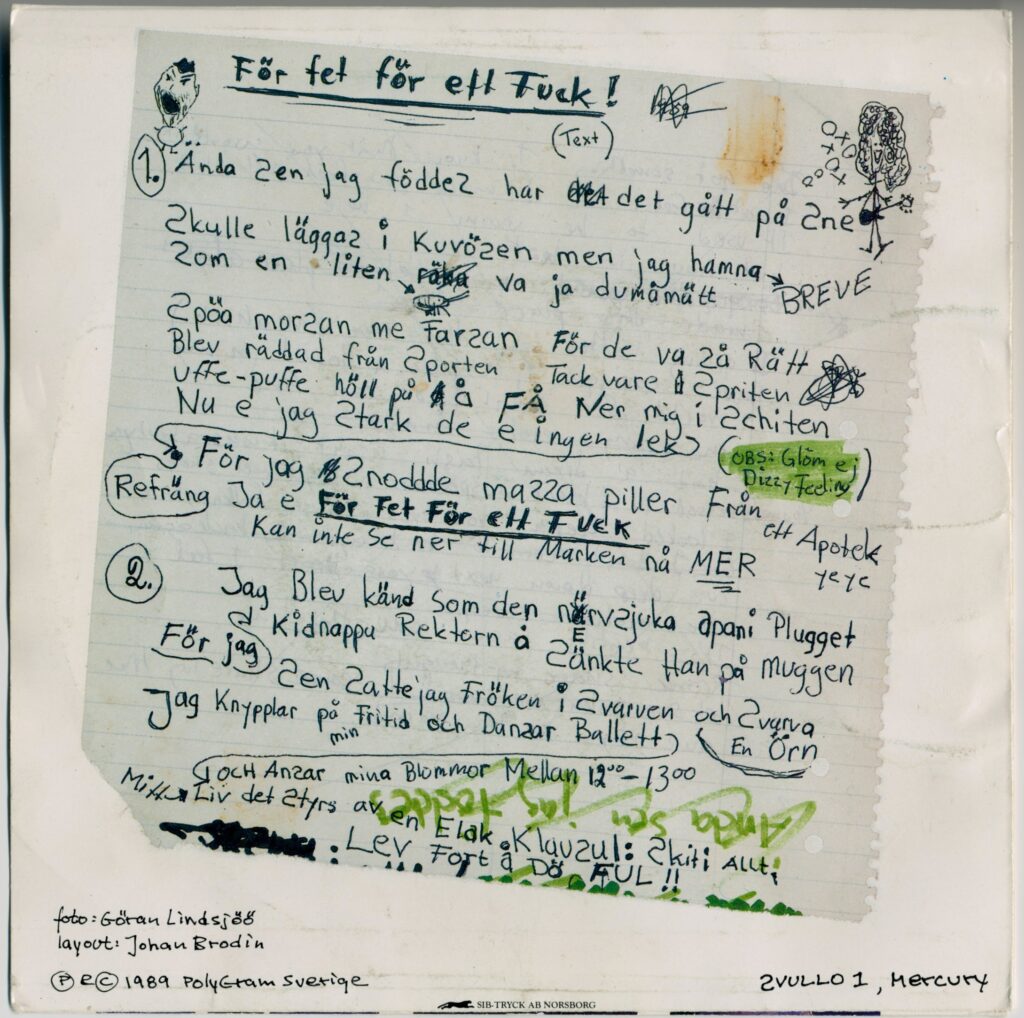 För fet för ett Fuck!
(Text)
1. Ända Sen jag föddeS har det gått på Sne
Skulle läggaS i KuvöSen men jag hamna BREVE
Som en liten räka va ja dumåmätt
Spöa morSan me FarSan För de va Så Rätt
Blev räddad från Sporten Tack vare Spriten
uffe-puffe höll på å FÅ Ner mig i Schiten
Nu e jag Stark de e ingen lek
(OBS: Glöm ej
Dizzy Feeling)
För jag Snoddde maSSa piller Från
ett Apotek
yeye
Refräng Ja e För Fet För ett FUCK
Kan inte Se ner till Marken nå MER
2. Jag Blev känd Som den nÄrvSjuka apan i Plugget
E
För jag Kidnappa Rektorn å Sänkte Han på Muggen
Sen Satte jag Fröken i Svarven och Svarva
En Örn
Jag Knypplar på min Fritid och DanSar Ballett
OCH AnSar mina Blommor Mellan 12⁰⁰-13⁰⁰
Ända sen jag föddes
Mitt Liv det Styrs av en Elak KlauSul: Skit i Allt,
Lev Fort å Dö FUL!!
foto: Göran Lindsjöö
layout: Johan Brodin
Ⓟ & © 1989 PolyGram Sverige
SVULLO 1, Mercury
SIB-TRYCK AB NORSBORG